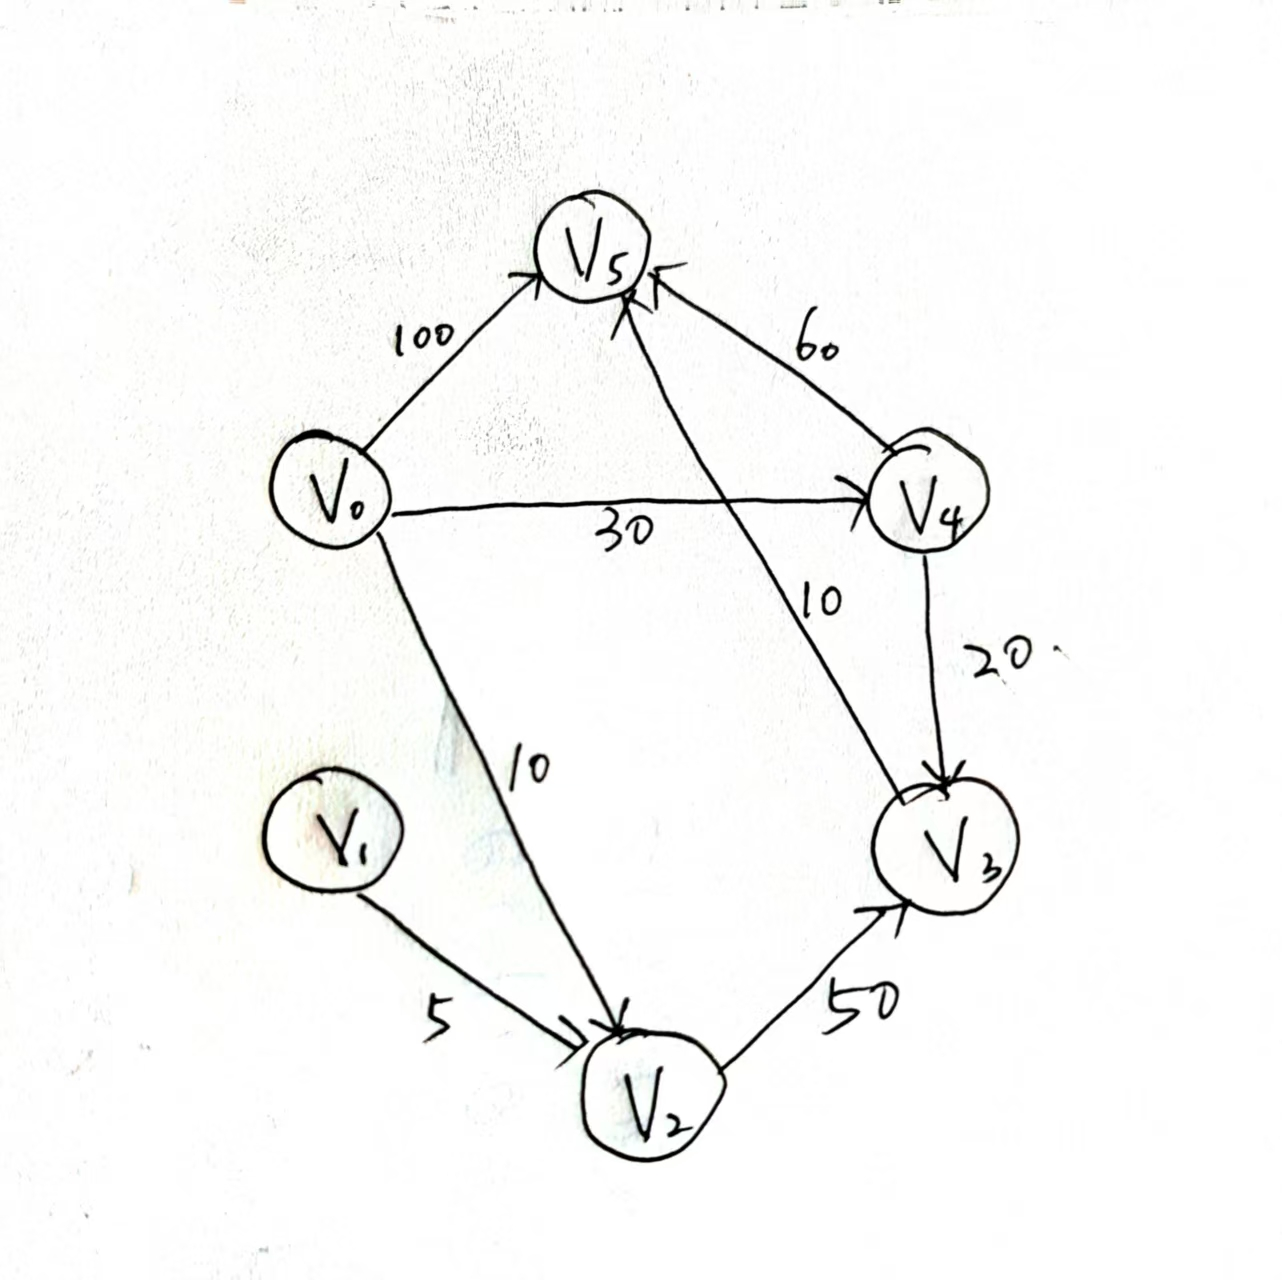 V5
100
60
V0
30
V4
10
20
10
V1
V3
5
50
V2